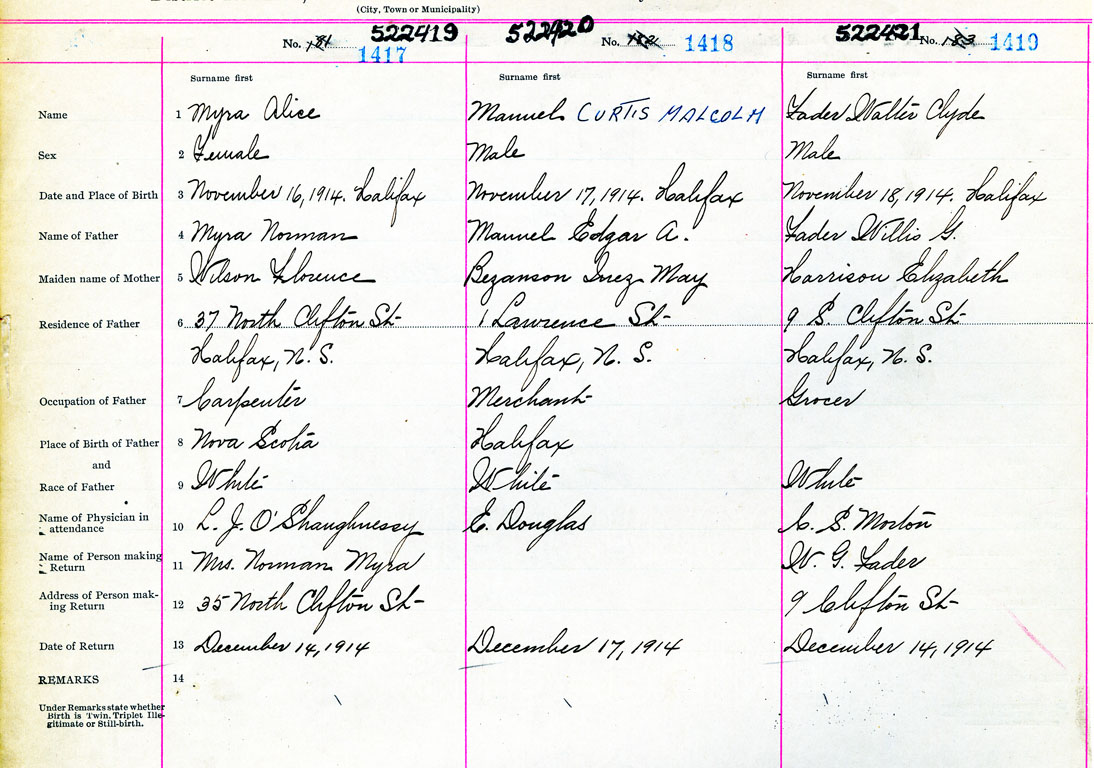 (City, Town or Municipality)
522419 522420 522421
No. 181 No. 182 No. 183
1417 1418 1419
Surname first Surname first Surname first
Name 1 Myra Alice Manuel CURTIS MALCOLM Fader Walter Clyde
Sex 2 Female Male Male
Date and Place of Birth 3 November 16, 1914. Halifax November 17, 1914. Halifax November 18, 1914. Halifax
Name of Father 4 Myra Norman Manuel Edgar A. Fader Willis G.
Maiden name of Mother 5 Wilson Florence Bezanson Inez May Harrison Elizabeth
Residence of Father 6 37 North Clifton St- 1 Lawrence St- 9 S. Clifton St-
Halifax, N. S. Halifax, N. S. Halifax, N. S.
Occupation of Father 7 Carpenter Merchant Grocer
Place of Birth of Father 8 Nova Scotia Halifax
and
Race of Father 9 White White White
Name of Physician in
attendance 10 L. J. O'Shaughnessy E. Douglas C. S. Morton
Name of Person making
Return 11 Mrs. Norman Myra W. G. Fader
Address of Person mak-
ing Return 12 35 North Clifton St- 9 Clifton St-
Date of Return 13 December 14, 1914 December 17, 1914 December 14, 1914
REMARKS 14
Under Remarks state whether
Birth is Twin, Triplet Ille-
gitimate or Still-birth.